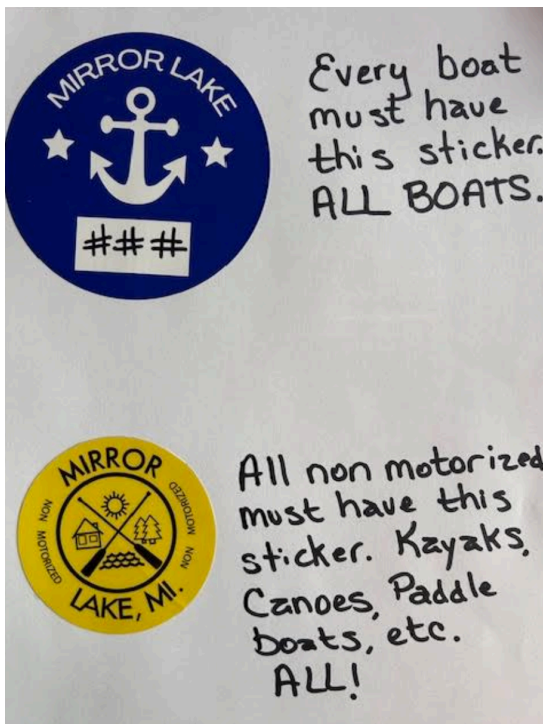 MIRROR LAKE
###
Every boat
must have
this sticker.
ALL BOATS.
MIRROR
NON MOTORIZED
MOTORIZED NON
LAKE, MI.
All non motorized
must have this
sticker. Kayaks,
Canoes, Paddle
boats, etc.
ALL!